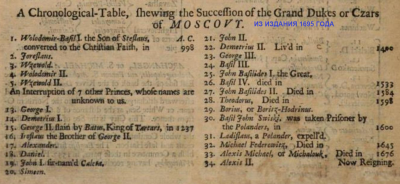 A Chronological-Table, shewing the Succession of the Grand Dukes or Czars
of MOSCOVY.
ИЗ ИЗДАНИЯ 1695 ГОДА
1. Wolodimir-Basil I. the Son of Stoslaus, A. C.
converted to the Christian Faith, in 998
2. Jaroslaus.
3. Wsevold.
4. Wolodimir II.
5. Wsevold II.
An Interruption of 7 other Princes, whose names are
unknown to us.
13. George I.
14. Demetrius I.
15. George II. slain by Battus, King of Tartars, in 1237
16. the Brother of George II.
17. Alexander.
18. Daniel.
19. John I. sirnam'd Caleta.
20. Simeon.
21. John II.
22. Demetrius II. Liv'd in 1400
23. George III.
24. Basil III.
25. John Basilides I. the Great,
26. Basil IV. died in 1533
27. John Basilides II. Died in 1584
28. Theodorus, Died in 1598
29. Boris, or Boritz-Hodvinus.
30. Basil John Suiski, was taken Prisoner by
the Polanders, in 1600
31. Ladislaus, a Polander, expell'd.
32. Michael Federowitz, Died in 1645
33. Alexis Michael, or Michalowk, Died in 1676
34. Alexis II. Now Reigning.